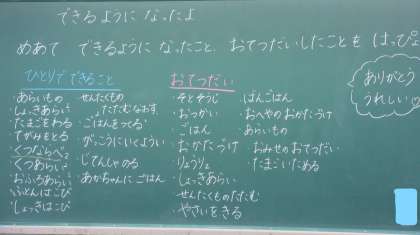 できるように なったよ
めあて できるように なったこと、おてつだいしたことを はっぴ
ひとりでできること
・あらいもの
・しょっきあらい
・たまごをわる
・てがみをとる
・くつならべ
・くつあらい
・おふろあらい
・ふとんはこび
・しょっきはこび
・せんたくもの
たたむ なおす
・ごはんをつくる
・がっこうにいくようい
・じてんしゃのる
・あかちゃんに ごはん
おてつだい
・そとそうじ
・おつかい
・ごはん
・おかたづけ
・りょうり
・しょっきあらい
・せんたくものたたむ
・やさいをきる
・ばんごはん
・おへやのおかたづけ
・あらいもの
・おみせのおてつだい
・たまごいためる
ありがとう
うれしい